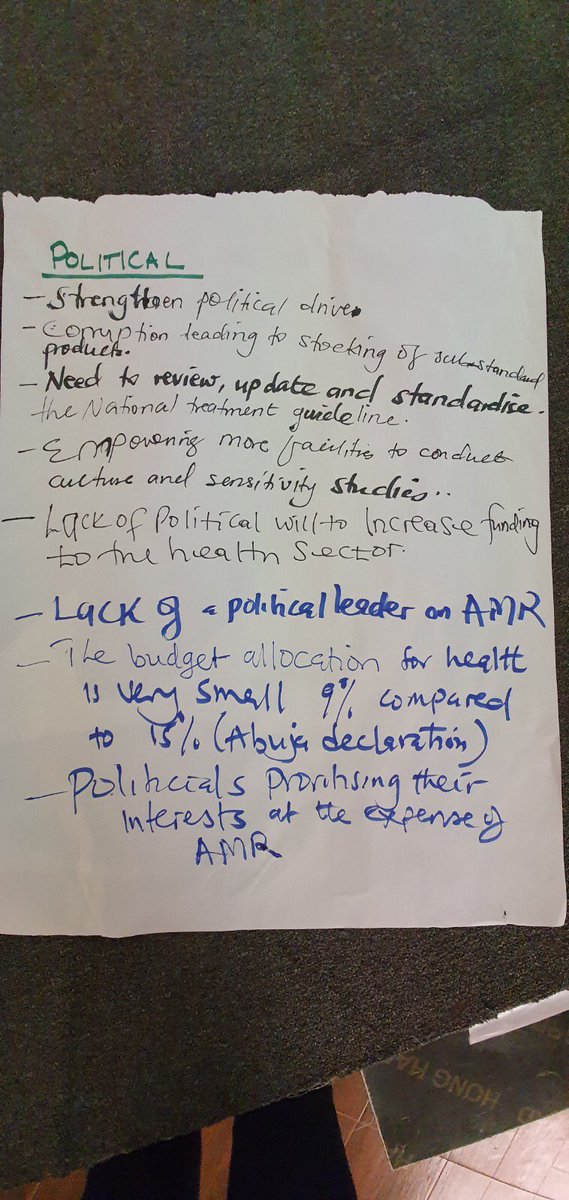 POLITICAL
- Strengthen political drive.
- Corruption leading to stocking of sub-standard
products.
- Need to review, update and standardise.
the National treatment guideline.
- Empowering more facilities to conduct
culture and sensitivity studies..
- Lack of Political will to Increase funding
to the health sector.
- Lack of a political leader on AMR
- The budget allocation for health
is very small 9% compared
to 15% (Abuja declaration)
- Politicials prioritising their
interests at the expense of
AMR
HONG